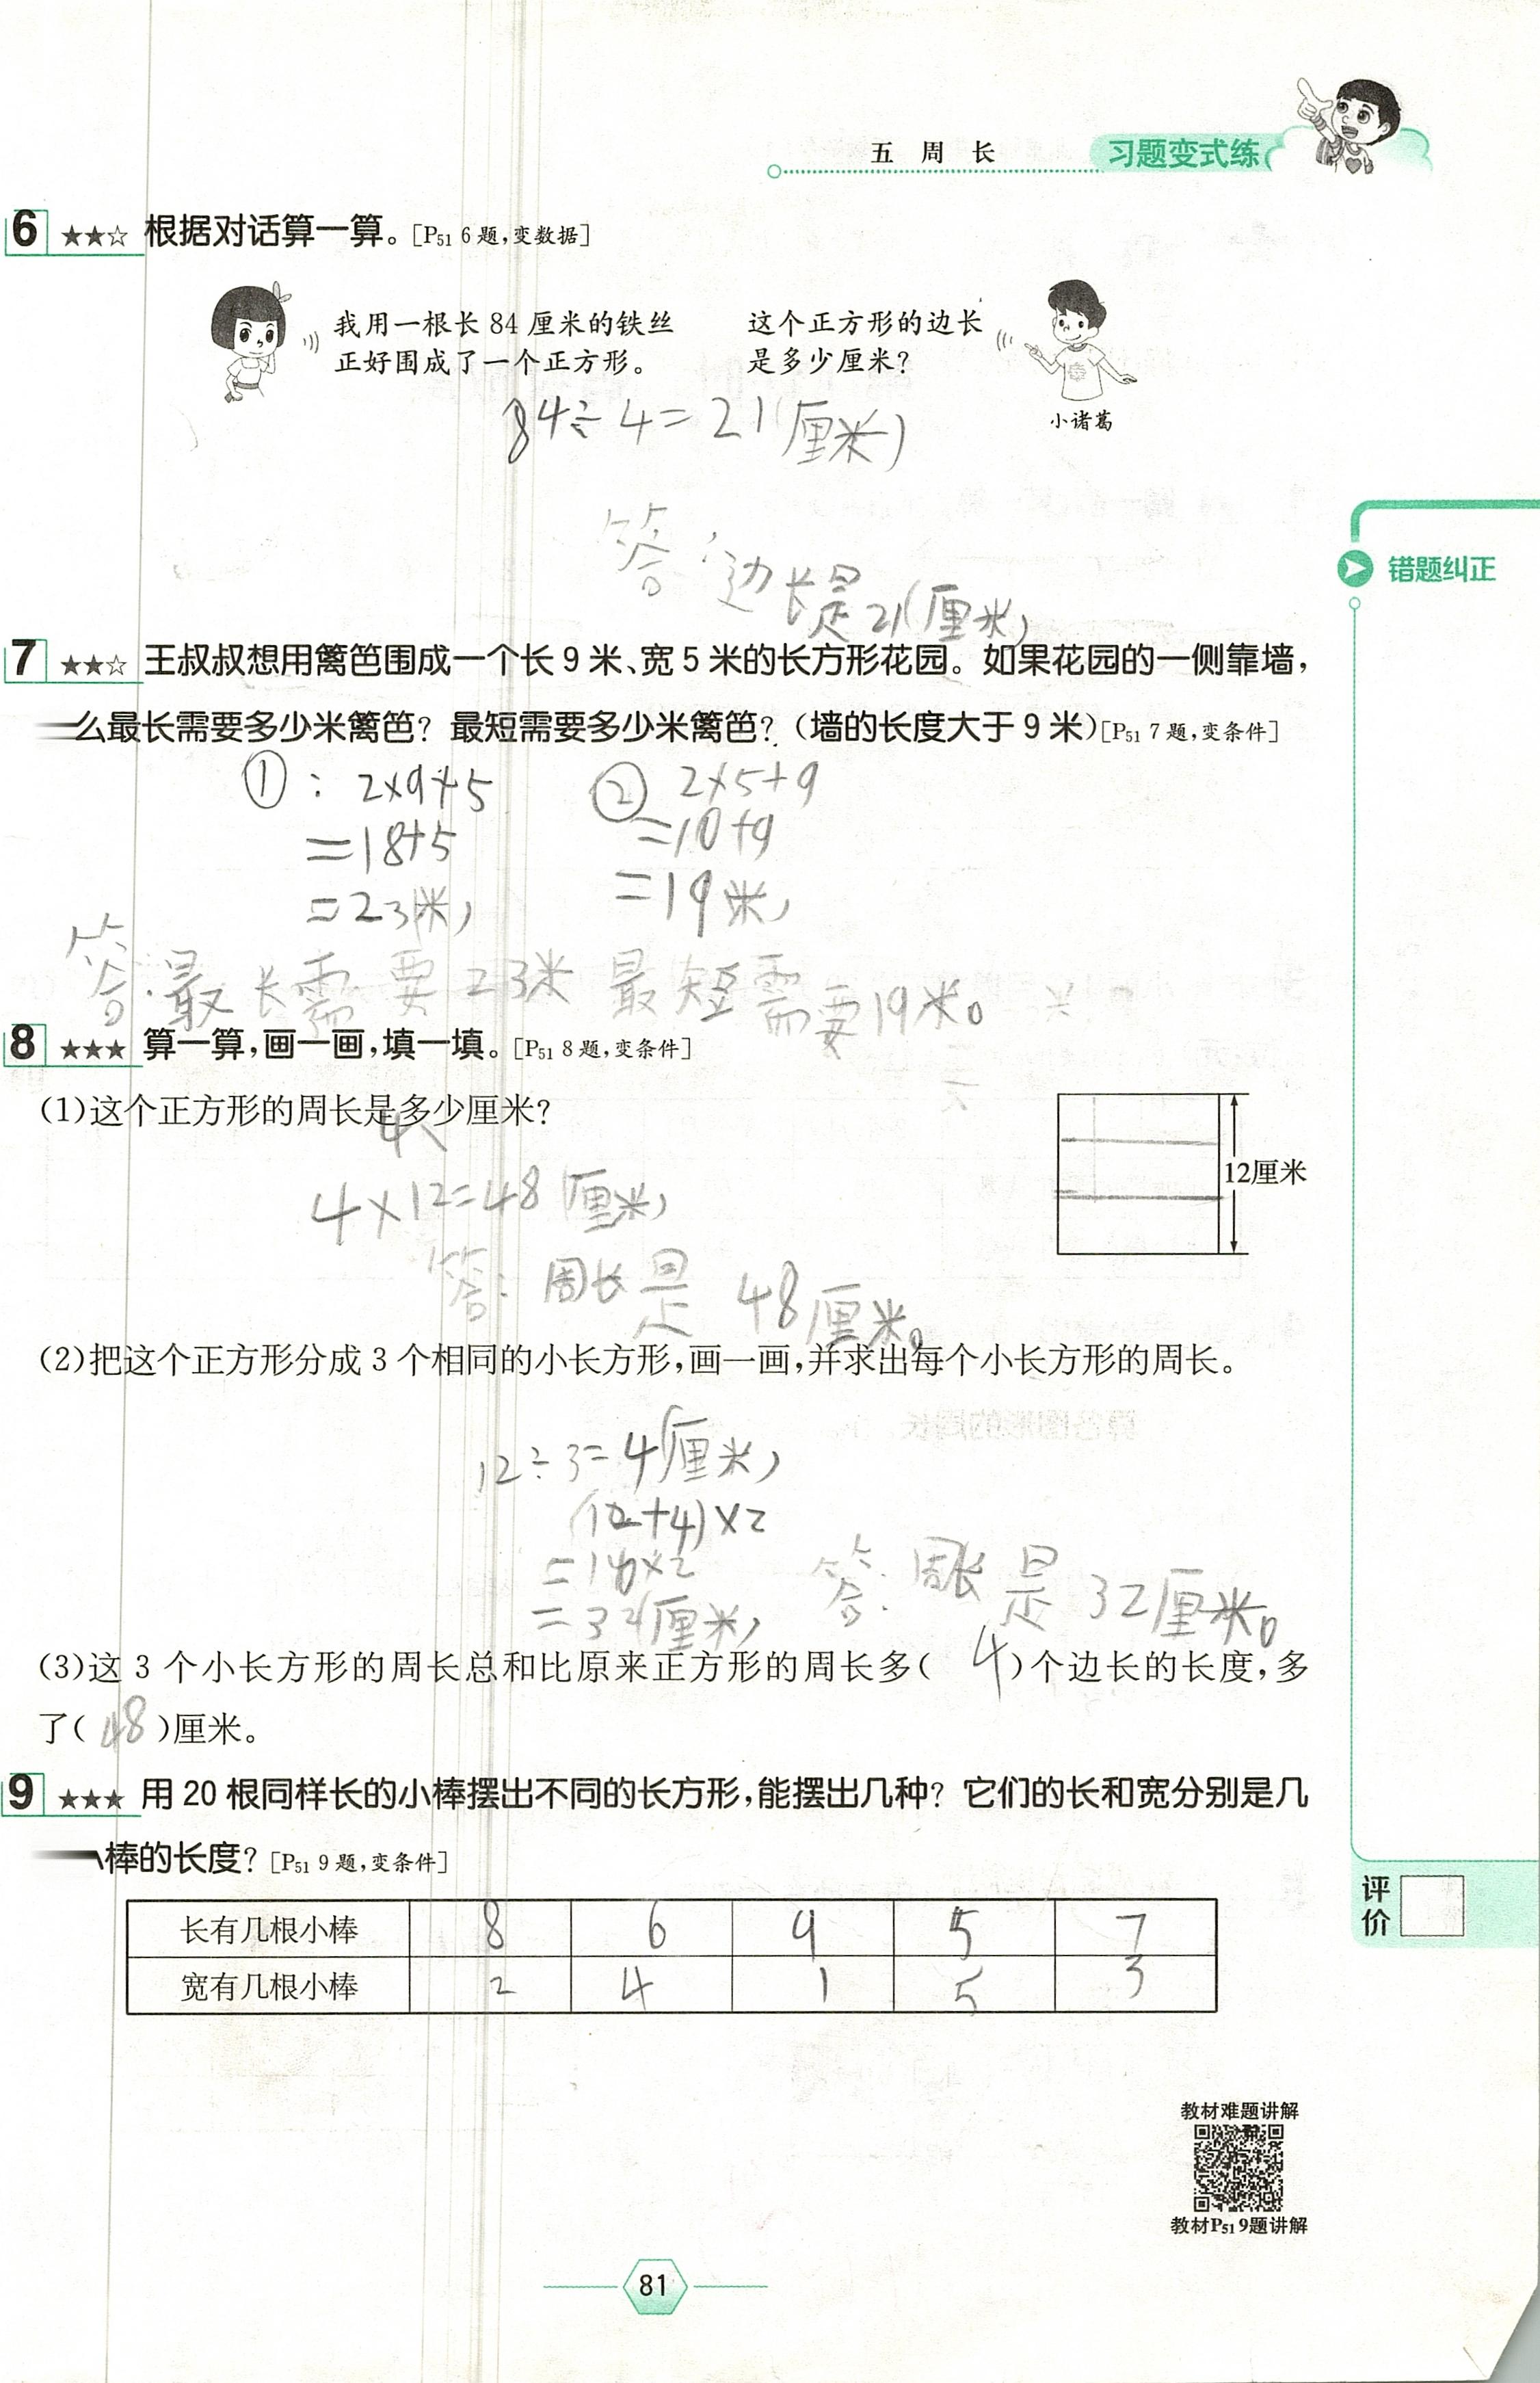 五 周 长
习题变式练
6 ★★☆ 根据对话算一算。[P51 6题,变数据]
我用一根长 84 厘米的铁丝
正好围成了一个正方形。
这个正方形的边长
是多少厘米?
小诸葛
84÷4=21(厘米)
答:边长是21(厘米)
错题纠正
7 ★★☆ 王叔叔想用篱笆围成一个长 9 米、宽 5 米的长方形花园。如果花园的一侧靠墙,
么最长需要多少米篱笆? 最短需要多少米篱笆? (墙的长度大于 9 米)[P51 7题,变条件]
①: 2×9+5
=18+5
=23(米)
② 2×5+9
=10+9
=19(米)
答:最长需要23米 最短需要19米。
8 ★★★ 算一算,画一画,填一填。[P51 8题,变条件]
(1)这个正方形的周长是多少厘米?
12厘米
4×12=48(厘米)
答:周长是 48厘米。
(2)把这个正方形分成 3 个相同的小长方形,画一画,并求出每个小长方形的周长。
12÷3=4(厘米)
(12+4)×2
=16×2
=32(厘米)
答:周长是 32厘米。
(3)这 3 个小长方形的周长总和比原来正方形的周长多( 4 )个边长的长度,多
了( 48 )厘米。
9 ★★★ 用 20 根同样长的小棒摆出不同的长方形,能摆出几种? 它们的长和宽分别是几
棒的长度? [P51 9题,变条件]
长有几根小棒 8 6 9 5 7
宽有几根小棒 2 4 1 5 3
评价
教材难题讲解
教材P51 9题讲解
81